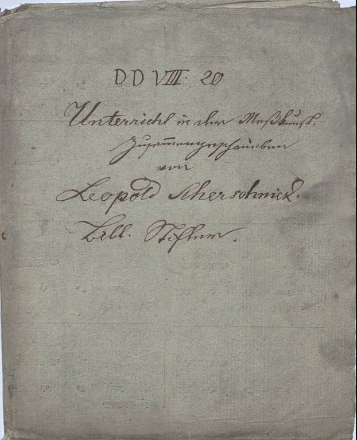 DD VIII. 20
Unterricht in der Meßkunst.
Zusammengeschrieben
von
Leopold Scherschnick.
Bibl. Stifter.